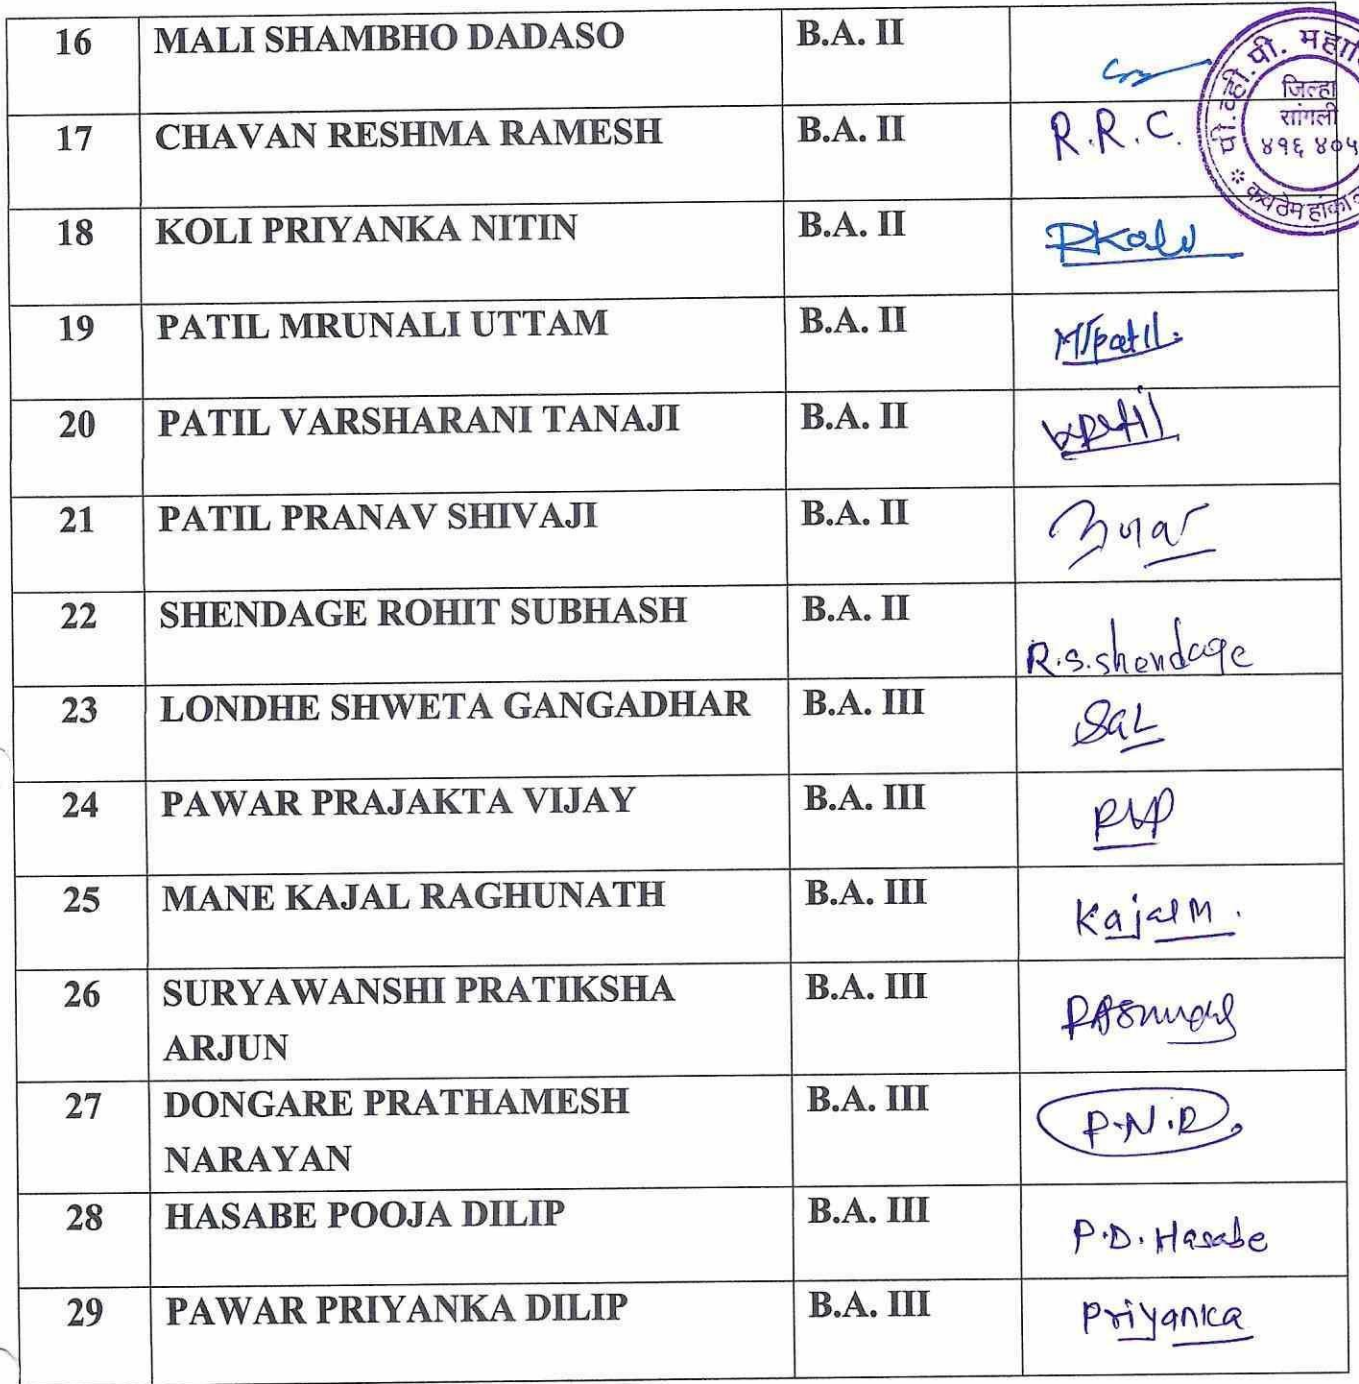 16 MALI SHAMBHO DADASO B.A. II
पी. व्ही. पी. महा
जिल्हा
सांगली
४१६ ४०५
17 CHAVAN RESHMA RAMESH B.A. II R.R.C.
18 KOLI PRIYANKA NITIN B.A. II PKoli
19 PATIL MRUNALI UTTAM B.A. II MUpatil.
20 PATIL VARSHARANI TANAJI B.A. II
21 PATIL PRANAV SHIVAJI B.A. II
22 SHENDAGE ROHIT SUBHASH B.A. II R.S.shendage
23 LONDHE SHWETA GANGADHAR B.A. III SGL
24 PAWAR PRAJAKTA VIJAY B.A. III PVP
25 MANE KAJAL RAGHUNATH B.A. III Kajal M.
26 SURYAWANSHI PRATIKSHA B.A. III
ARJUN
27 DONGARE PRATHAMESH B.A. III P.N.D.
NARAYAN
28 HASABE POOJA DILIP B.A. III P.D. Hasabe
29 PAWAR PRIYANKA DILIP B.A. III Priyanka